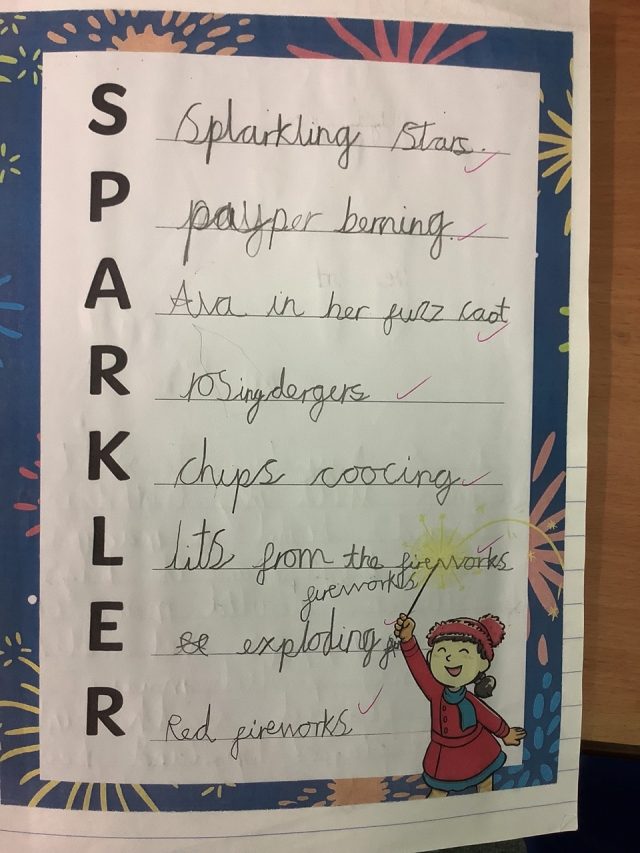 S Splarkling Stars.
P paypper berning.
A Ava in her fuzz caot
R rosingdergers
K chips coocing
L lits from the fireworks
fireworks
E exploding
R Red fireworks